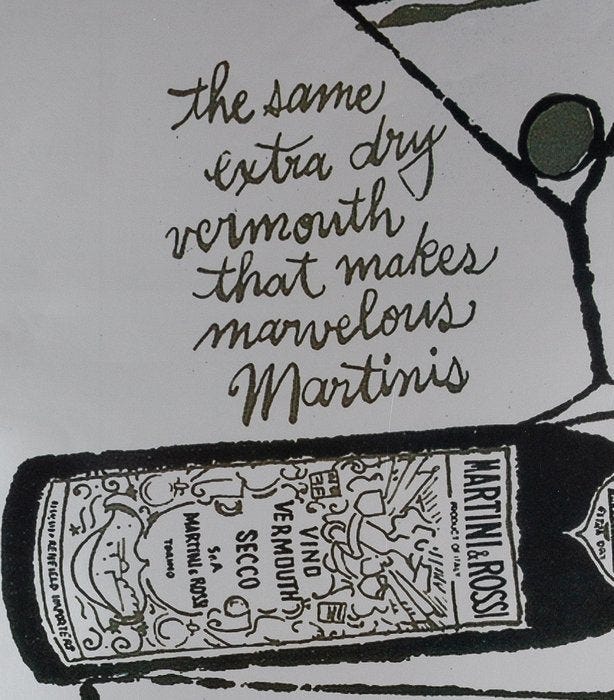 the same
extra dry
vermouth
that makes
marvelous
Martinis
MARTINI & ROSSI
PRODUCT OF ITALY
VINO
VERMOUTH
SECCO
S.p.A
MARTINI & ROSSI
TORINO
RENFIELD IMPORTERS